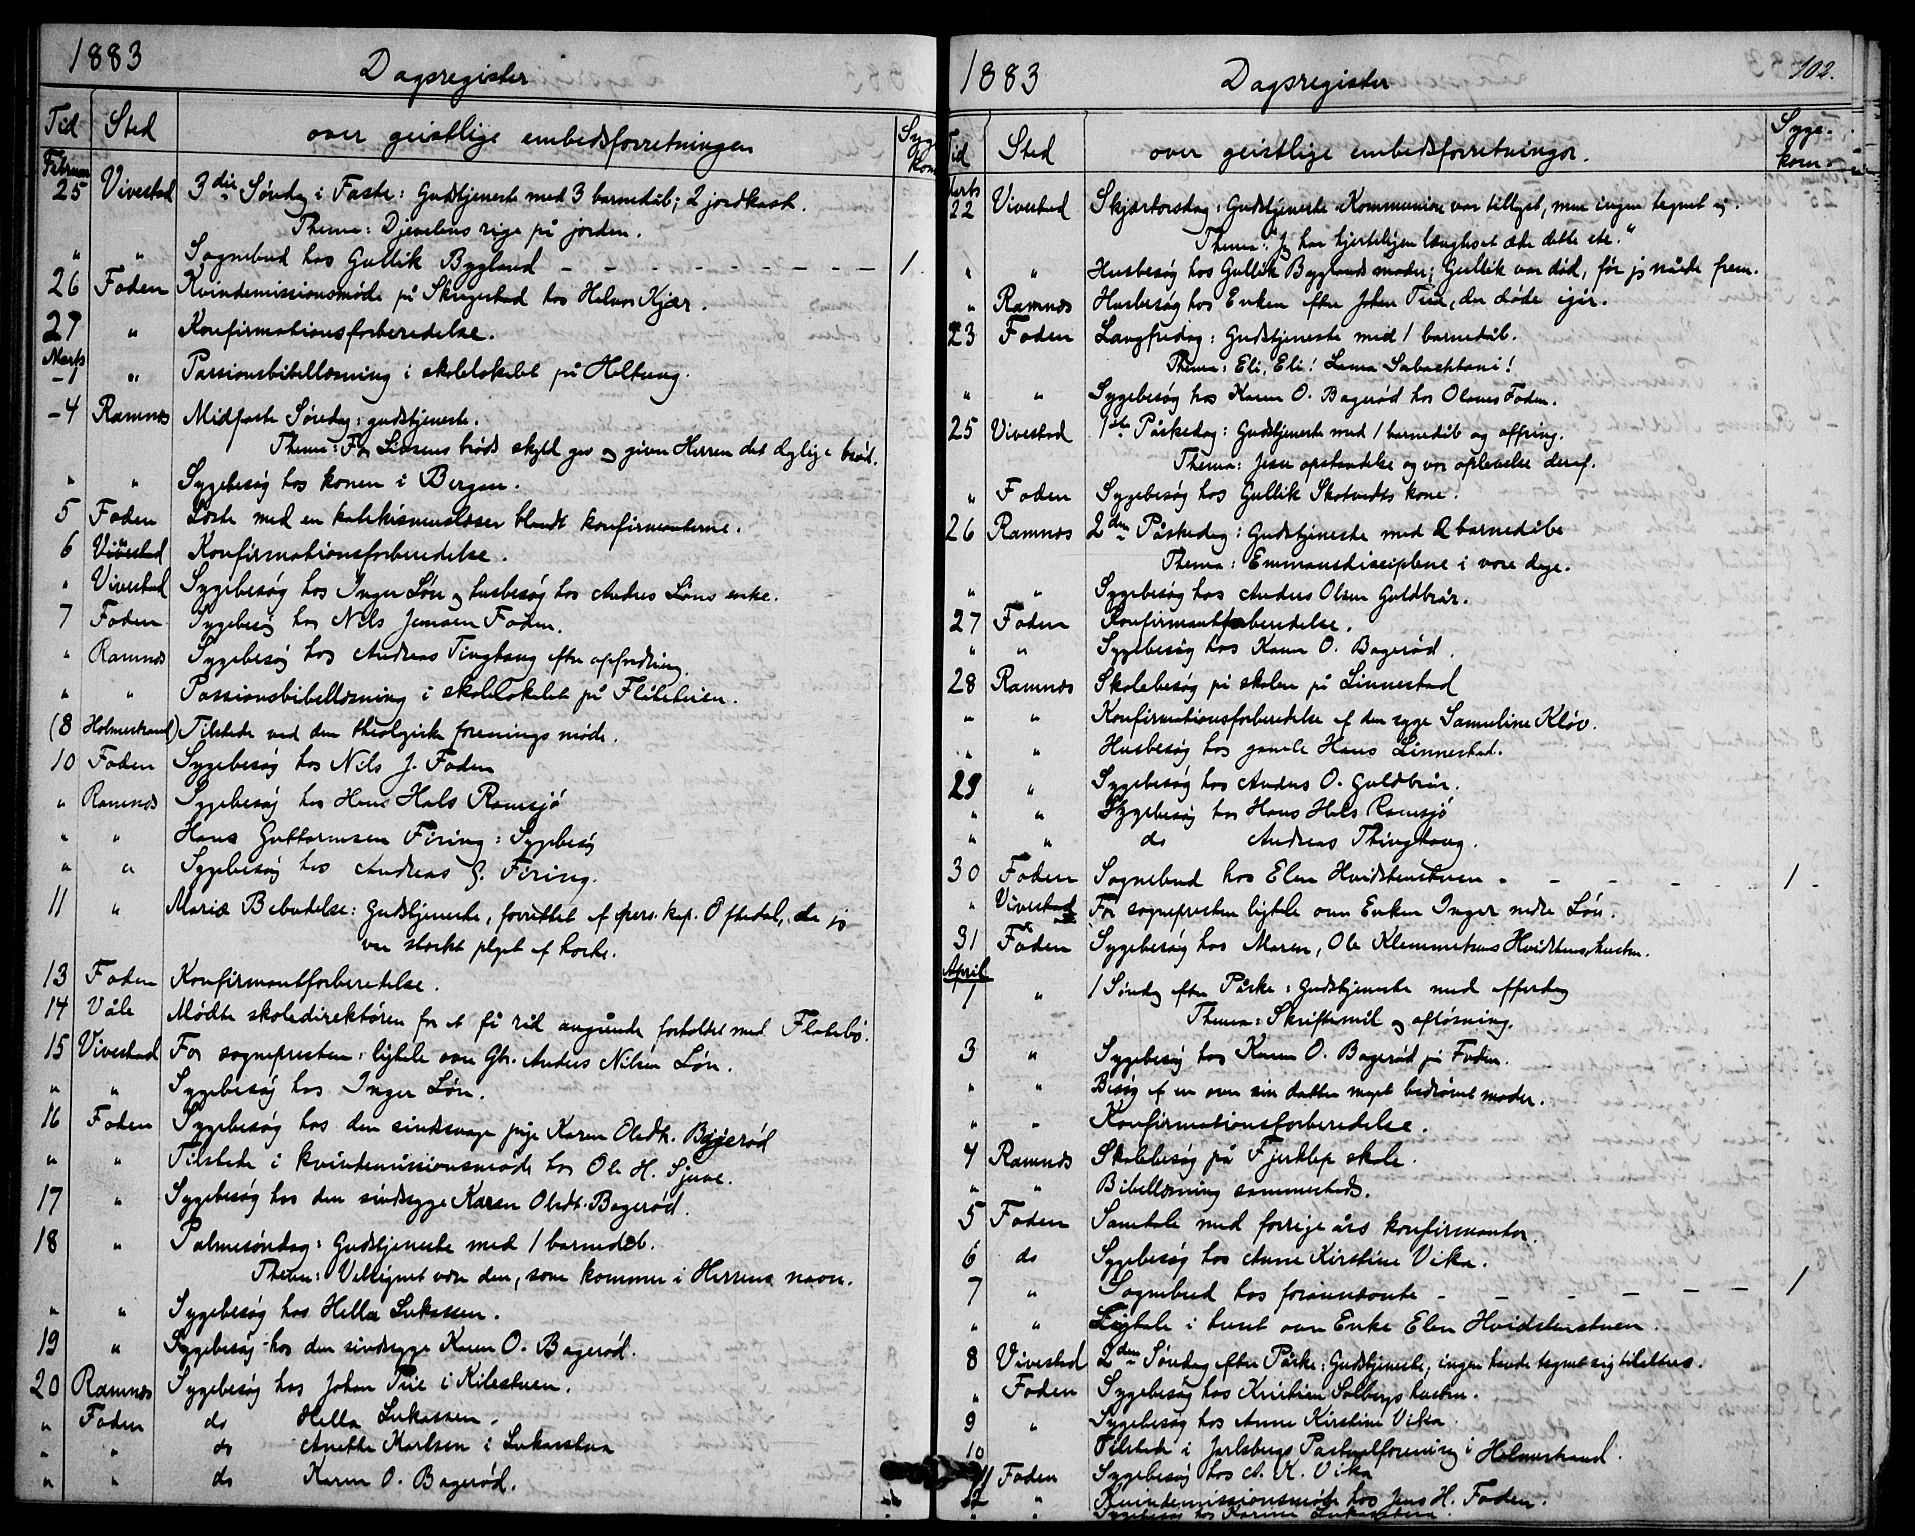 1883
Dagsregister
Tid Sted over geistlige embedsforretningen Syge kom
Februar
25 Vivestad 3die Søndag i Faste: Gudstjeneste med 3 barnedåb; 2 jordkast.
Thema: Djevelens rige på jorden.
" " Sognebud hos Gullik Bygland - - - - - - - - - 1.
26 Foden Kvindemissionsmøde på Skugestad hos Helvor Kjær.
27 " Konfirmationsforberedelse.
Marts
-1 " Passionsbibellæsning i skolelokalet på Heltung.
-4 Ramnæs Midfaste Søndag: gudstjeneste.
Thema: For Livsens brøds skyld gav og giver Herren det daglige brød.
" " Sygebesøg hos konen i Bergan.
5 Foden Læste med en katekismuslæser blandt konfirmanterne.
6 " Konfirmationsforberedelse.
" Vivestad Sygebesøg hos Inger Løn og husbesøg hos Andres Løns enke.
7 Foden Sygebesøg hos Nils Jensen Foden.
" Ramnæs Sygebesøg hos Andreas Tinghaug efter opfordring
" " Passionsbibellæsning i skolelokalet på Flåteteien.
(8 Holmestrand) Tilstede ved den theologiske forenings møde.
10 Foden Sygebesøg hos Nils J. Foden
" Ramnæs Sygebesøg hos Hans Hals Ramsjø
" " Hans Guttormsen Firing: Sygebesøg
" " Sygebesøg hos Andreas G. Firing.
11 " Mariæ Bebudelse: Gudstjeneste, forrettet af pers. kap. Oftedal, da jeg
var stærkt plaget af hoste.
13 Foden Konfirmantforberedelse.
14 Våle Mødte skoledirektøren for at få råd angående forholdet med Flatebø.
15 Vivestad For sognepresten: ligtale over Gbr. Anders Nilsen Løn.
" " Sygebesøg hos Inger Løn.
16 Foden Sygebesøg hos den sindssvage pige Karen Olsdt. Bagerød
" " Tilstede i kvindemissionsmøde hos Ole H. Sjuve.
17 " Sygebesøg hos den sindssyge Karen Olsdt. Bagerød.
18 " Palmesøndag: Gudstjeneste med 1 barnedåb.
Thema: Velsignet være den, som kommer i Herrens navn.
" " Sygebesøg hos Hella Lukassen.
19 " Sygebesøg hos den sindssyge Karen O. Bagerød.
20 Ramnæs Sygebesøg hos Johan Trie i Kilestuen.
" Foden do Hella Lukassen.
" " do Anette Karlsen i Lukasstua
" " do Karen O. Bagerød.
1883
Dagsregister
102.
Tid Sted over geistlige embedsforretninger. Syge- kom.
Marts
22 Vivestad Skjærtorsdag: Gudstjeneste. Kommunion var tillyst, men ingen tegnet sig.
Thema: "Jeg har hjerteligen længtes at æde dette etc."
" " Husbesøg hos Gullik Byglands moder; Gullik var død, før jeg nåede frem.
" Ramnæs Husbesøg hos Enken efter Johan Trie, der døde igår.
23 Foden Langfredag: Gudstjeneste med 1 barnedåb.
Thema: Eli, Eli! Lama Sabachtani!
" " Sygebesøg hos Karen O. Bagerød hos Olaves Foden.
25 Vivestad 1ste Påskedag: Gudstjeneste med 1 barnedåb og offring.
Thema: Jesu opstandelse og vor oplevelse deraf.
" Foden Sygebesøg hos Gullik Skotvedts kone.
26 Ramnæs 2den Påskedag: Gudstjeneste med 2 barnedåbe
Thema: Emmausdisciplene i vore dage.
" " Sygebesøg hos Anders Olsen Guldbrår.
27 Foden Konfirmantforberedelse.
" " Sygebesøg hos Karen O. Bagerød.
28 Ramnæs Skolebesøg på skolen på Linnestad
" " Konfirmationsforberedelse af den syge Samueline Kløv.
" " Husbesøg hos gamle Hans Linnestad.
29 " Sygebesøg hos Anders O. Guldbrår.
" " Sygebesøg hos Hans Hals Ramsjø
" " do Andreas Thinghaug.
30 Foden Sognebud hos Elen Hvidstenstuen - - - - - - - 1 -
" Vivestad For sognepresten ligtale over Enken Inger nedre Løn.
31 Foden Sygebesøg hos Maren, Ole Klemmetsens Hvidstens hustru.
April
1 " 1 Søndag efter Påske: Gudstjeneste med offerdag
Thema: Skriftemål og afløsning.
3 " Sygebesøg hos Karen O. Bagerød på Foden.
" " Besøg af en over sin datter meget bedrøvet moder.
" " Konfirmationsforberedelse.
4 Ramnæs Skolebesøg på Fjerklep skole.
" " Bibellæsning sammesteds.
5 Foden Samtale med forrige års konfirmanter.
6 do Sygebesøg hos Anne Kirstine Vika.
7 " Sognebud hos forannævnte - - - - - - 1
" " Ligtale i huset over Enke Elen Hvidstenstuen.
8 Vivestad 2den Søndag efter Påske: Gudstjeneste; ingen havde tegnet sig til alters.
" Foden Sygebesøg hos Kristian Solbergs hustru.
9 " Sygebesøg hos Anne Kirstine Vika.
10 Tilstede i Jarlsbergs Pastoralforening i Holmestrand.
11 Foden Sygebesøg hos A. K. Vika
12 " Kvindemissionsmøde hos Jens H. Foden.
" " Sygebesøg hos Karine Lukasstua.